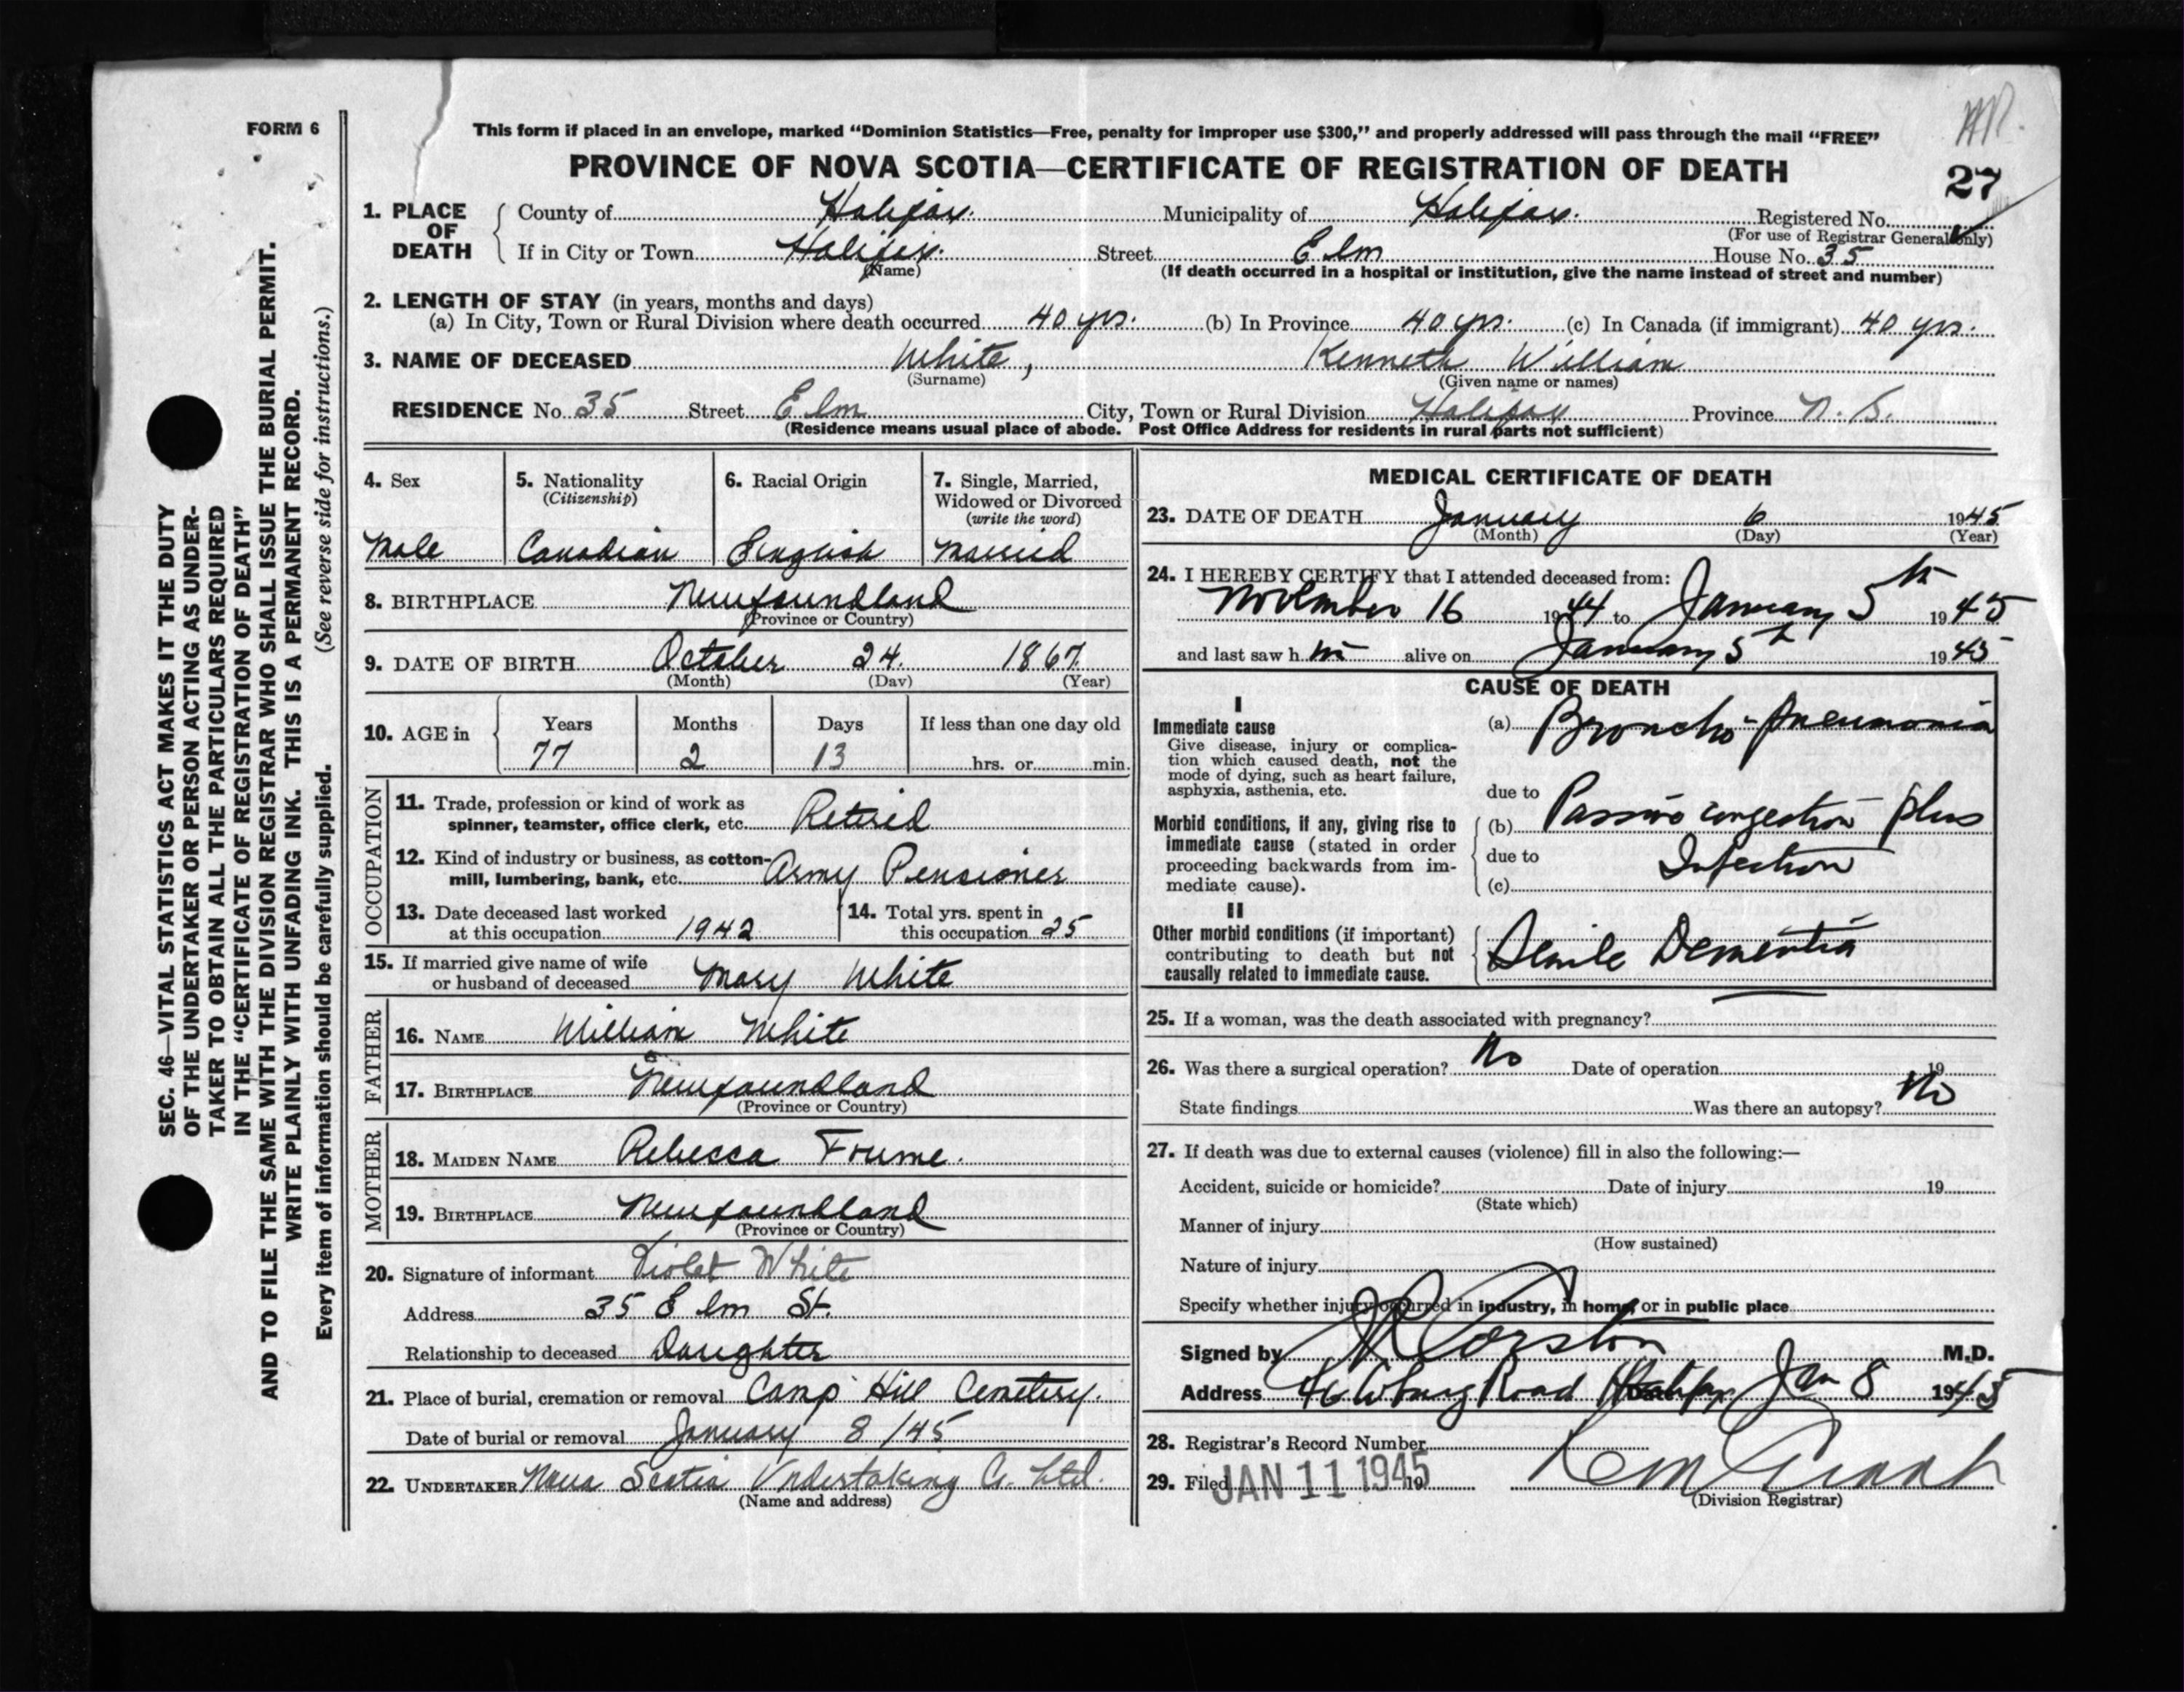 FORM 6
This form if placed in an envelope, marked “Dominion Statistics—Free, penalty for improper use $300,” and properly addressed will pass through the mail “FREE”
PROVINCE OF NOVA SCOTIA—CERTIFICATE OF REGISTRATION OF DEATH
27
1. PLACE OF DEATH
County of Halifax. Municipality of Halifax. Registered No.
(For use of Registrar General only)
If in City or Town Halifax. Street Elm House No. 35
(Name) (If death occurred in a hospital or institution, give the name instead of street and number)
2. LENGTH OF STAY (in years, months and days)
(a) In City, Town or Rural Division where death occurred 40 yrs. (b) In Province 40 yrs. (c) In Canada (if immigrant) 40 yrs.
3. NAME OF DECEASED White, Kenneth William
(Surname) (Given name or names)
RESIDENCE No. 35 Street Elm City, Town or Rural Division Halifax Province N.S.
(Residence means usual place of abode. Post Office Address for residents in rural parts not sufficient)
4. Sex
Male
5. Nationality
(Citizenship)
Canadian
6. Racial Origin
English
7. Single, Married,
Widowed or Divorced
(write the word)
Married
8. BIRTHPLACE Newfoundland
(Province or Country)
9. DATE OF BIRTH October 24. 1867.
(Month) (Day) (Year)
10. AGE in
Years Months Days If less than one day old
77 2 13 hrs. or min.
OCCUPATION
11. Trade, profession or kind of work as
spinner, teamster, office clerk, etc. Retired
12. Kind of industry or business, as cotton-
mill, lumbering, bank, etc. Army Pensioner
13. Date deceased last worked
at this occupation 1942
14. Total yrs. spent in
this occupation 25
15. If married give name of wife
or husband of deceased Mary White
FATHER
16. NAME William White
17. BIRTHPLACE Newfoundland
(Province or Country)
MOTHER
18. MAIDEN NAME Rebecca Froume.
19. BIRTHPLACE Newfoundland
(Province or Country)
20. Signature of informant Violet White
Address 35 Elm St.
Relationship to deceased Daughter
21. Place of burial, cremation or removal Camp Hill Cemetery.
Date of burial or removal January 8/45
22. UNDERTAKER Nova Scotia Undertaking Co. Ltd.
(Name and address)
MEDICAL CERTIFICATE OF DEATH
23. DATE OF DEATH January 6 1945
(Month) (Day) (Year)
24. I HEREBY CERTIFY that I attended deceased from:
November 16 1944 to January 5th 1945
and last saw h im alive on January 5th 1945
CAUSE OF DEATH
I
Immediate cause
Give disease, injury or complica-
tion which caused death, not the
mode of dying, such as heart failure,
asphyxia, asthenia, etc.
(a) Broncho-pneumonia
due to
Morbid conditions, if any, giving rise to
immediate cause (stated in order
proceeding backwards from im-
mediate cause).
(b) Passive congestion plus
due to Infection
(c)
II
Other morbid conditions (if important)
contributing to death but not
causally related to immediate cause.
Senile Dementia
25. If a woman, was the death associated with pregnancy?
26. Was there a surgical operation? No Date of operation 19
State findings Was there an autopsy? No
27. If death was due to external causes (violence) fill in also the following:—
Accident, suicide or homicide? Date of injury 19
(State which)
Manner of injury
(How sustained)
Nature of injury
Specify whether injury occurred in industry, in home, or in public place
Signed by J R Corston M.D.
Address 46 Coburg Road Halifax Date Jan 8 1945
28. Registrar's Record Number
29. Filed JAN 11 1945 19
(Division Registrar)
SEC. 46—VITAL STATISTICS ACT MAKES IT THE DUTY
OF THE UNDERTAKER OR PERSON ACTING AS UNDER-
TAKER TO OBTAIN ALL THE PARTICULARS REQUIRED
IN THE “CERTIFICATE OF REGISTRATION OF DEATH”
AND TO FILE THE SAME WITH THE DIVISION REGISTRAR WHO SHALL ISSUE THE BURIAL PERMIT.
WRITE PLAINLY WITH UNFADING INK. THIS IS A PERMANENT RECORD.
Every item of information should be carefully supplied. (See reverse side for instructions.)